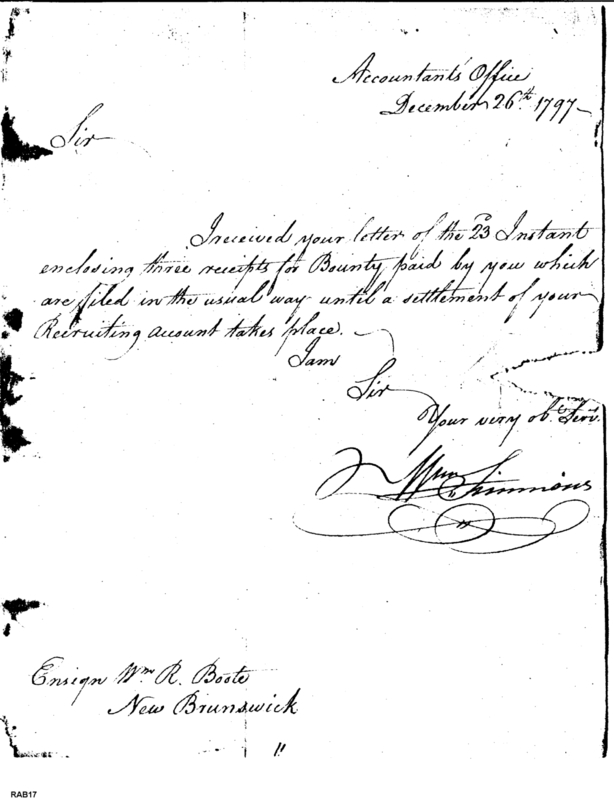 Accountant's Office
December 26th 1797
Sir
I received your letter of the 23d Instant
enclosing three receipts for Bounty paid by you which
are filed in the usual way until a settlement of your
Recruiting account takes place.
I am
Sir
Your very ob. Servt.
Wm Simmons
Ensign Wm R. Boote
New Brunswick
RAB17